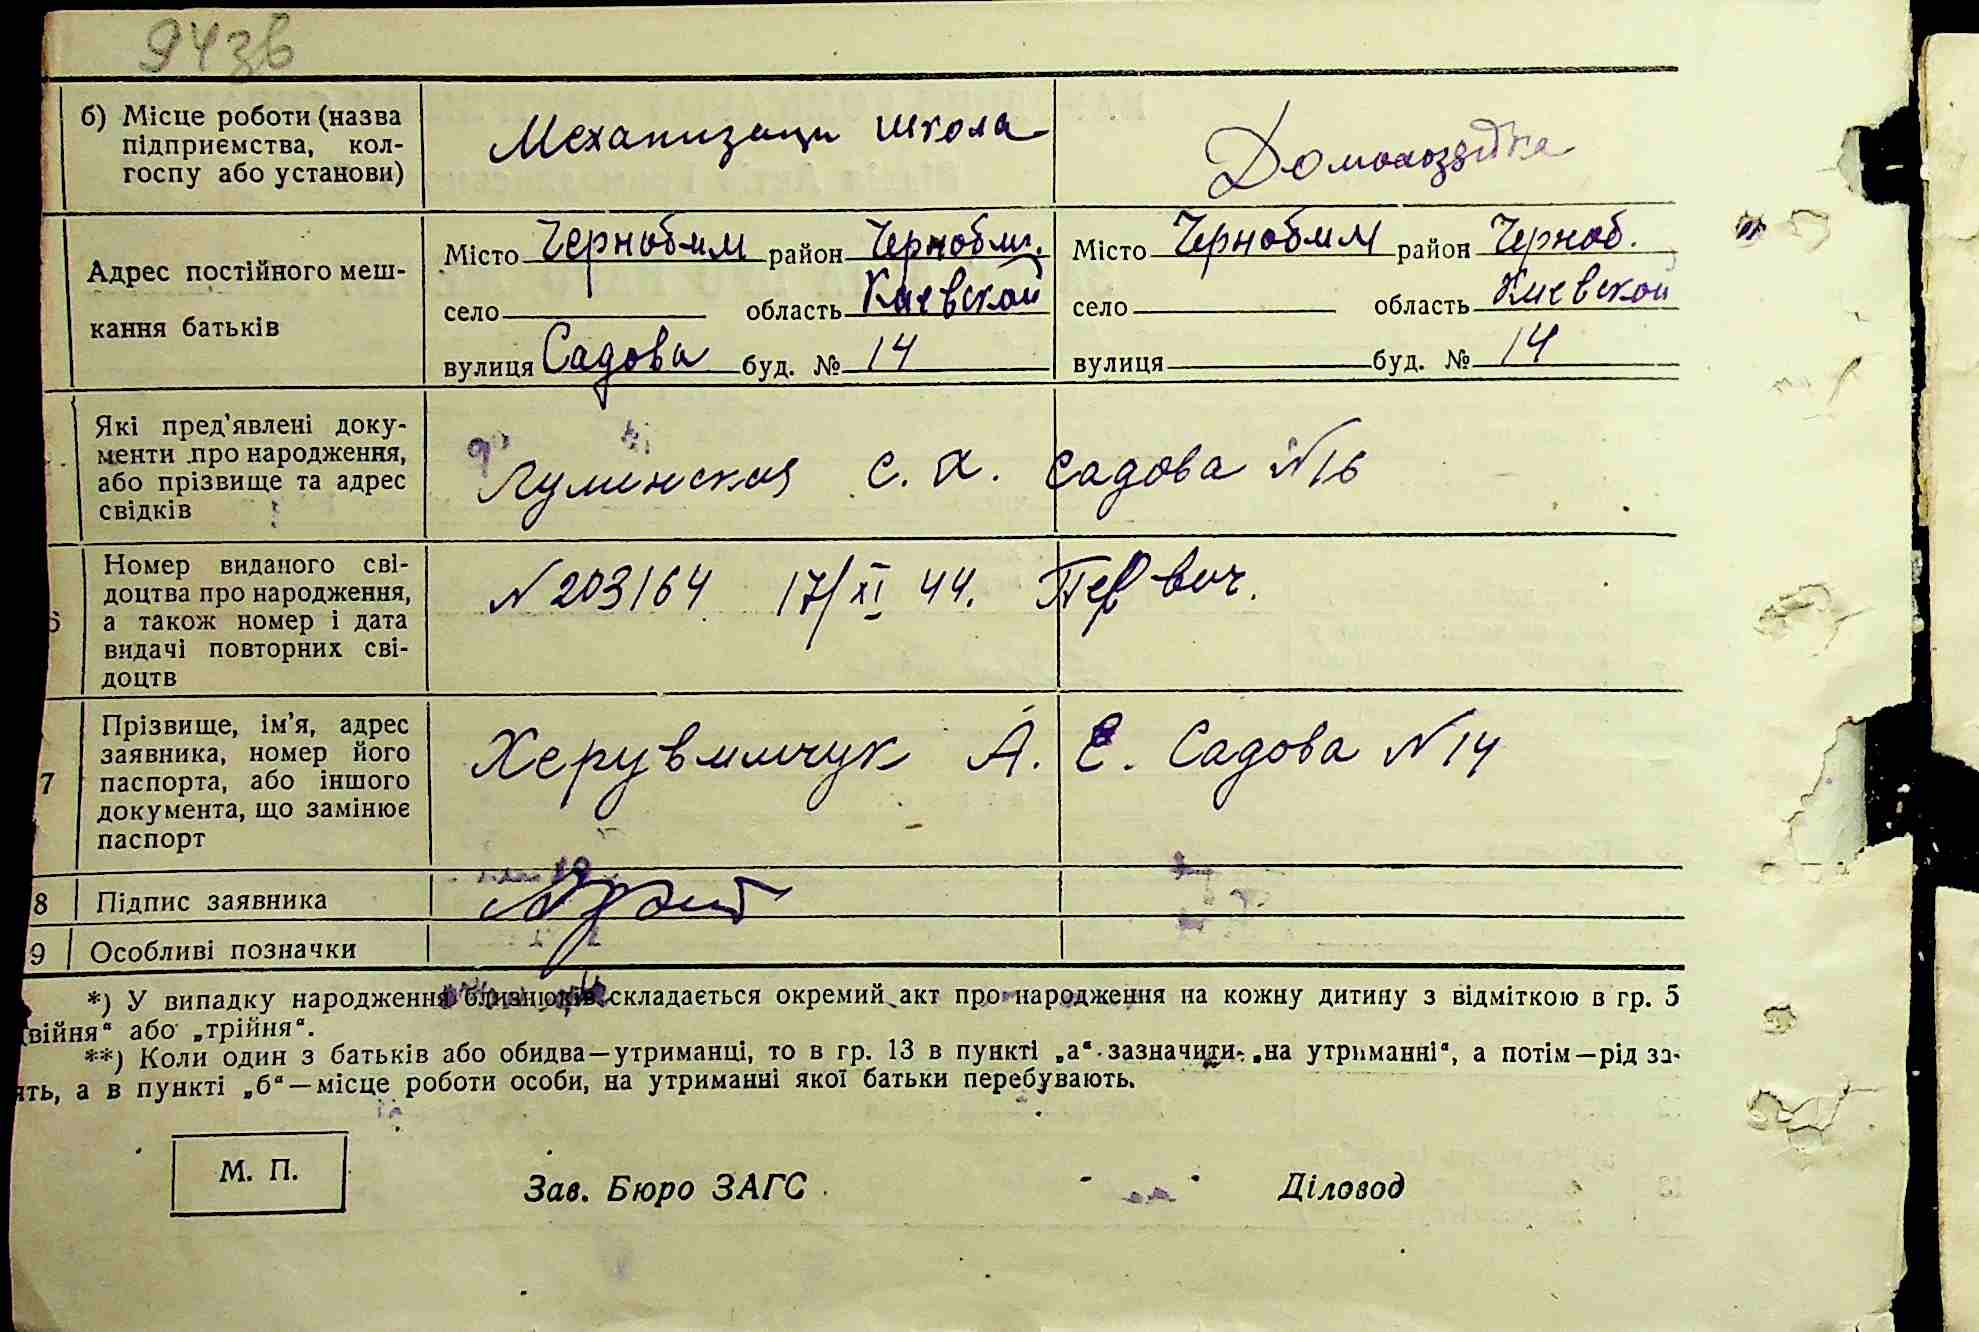 94зв
б) Місце роботи (назва
підприємства, кол-
госпу або установи)
Механизаци школа
Домохозяйка
Адрес постійного меш-
кання батьків
Місто Чернобыл район Чернобыл.
село область Киевской
вулиця Садова буд. № 14
Місто Чернобыл район Черноб.
село область Киевской
вулиця буд. № 14
Які пред'явлені доку-
менти про народження,
або прізвище та адрес
свідків
С. Х. Садова N 16
6
Номер виданого сві-
доцтва про народження,
а також номер і дата
видачі повторних сві-
доцтв
N 203164 17/XI 44. Первич.
7
Прізвище, ім'я, адрес
заявника, номер його
паспорта, або іншого
документа, що замінює
паспорт
Херувимчук А. Е. Садова N 14
8 Підпис заявника
9 Особливі позначки
*) У випадку народження близнюків складається окремий акт про народження на кожну дитину з відміткою в гр. 5
війня“ або „трійня“.
**) Коли один з батьків або обидва—утриманці, то в гр. 13 в пункті „а“ зазначити „на утриманні“, а потім—рід за-
ять, а в пункті „б“—місце роботи особи, на утриманні якої батьки перебувають.
М. П.
Зав. Бюро ЗАГС
Діловод